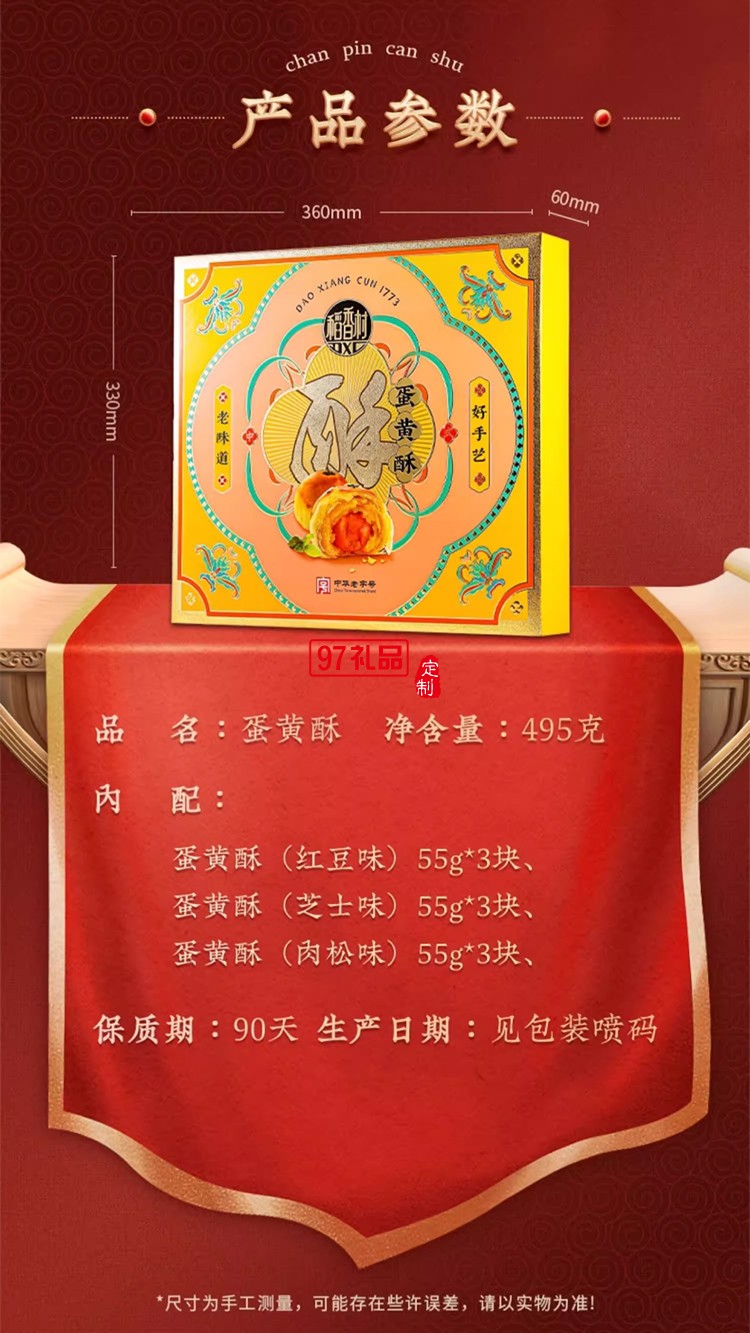 chan pin can shu
产品参数
360mm
60mm
330mm
DAO XIANG CUN 1773
稻香村
DXC
酥
蛋黄酥
老味道
好手艺
字
中华老字号
97礼品
定制
品 名：蛋黄酥 净含量：495克
内 配：
蛋黄酥（红豆味）55g*3块、
蛋黄酥（芝士味）55g*3块、
蛋黄酥（肉松味）55g*3块、
保质期：90天 生产日期：见包装喷码
*尺寸为手工测量，可能存在些许误差，请以实物为准!